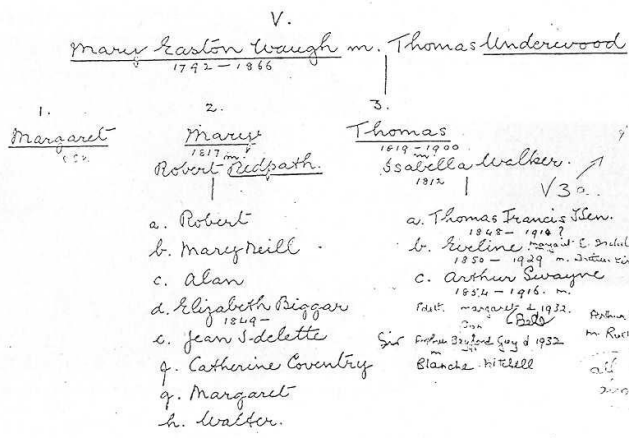 V.
Mary Easton Waugh m. Thomas Underwood
1792 - 1866
1.
Margaret
2.
Mary
1817
m.
Robert Redpath.
a. Robert
b. Mary Neill
c. Alan
d. Elizabeth Biggar
1849 -
e. Jean
f. Catherine Coventry
g. Margaret
h. Walter.
3.
Thomas
1819 - 1900
m.
Isabella Walker.
1812
V3a.
a. Thomas Francis Ken.
1848 - 1910?
b. Eveline
1850 - 1929 m.
c. Arthur Swayne
1854 - 1916. m.
margaret d 1932.
Sir Guy d 1932
m
Blanche Mitchell
Arthur
m.